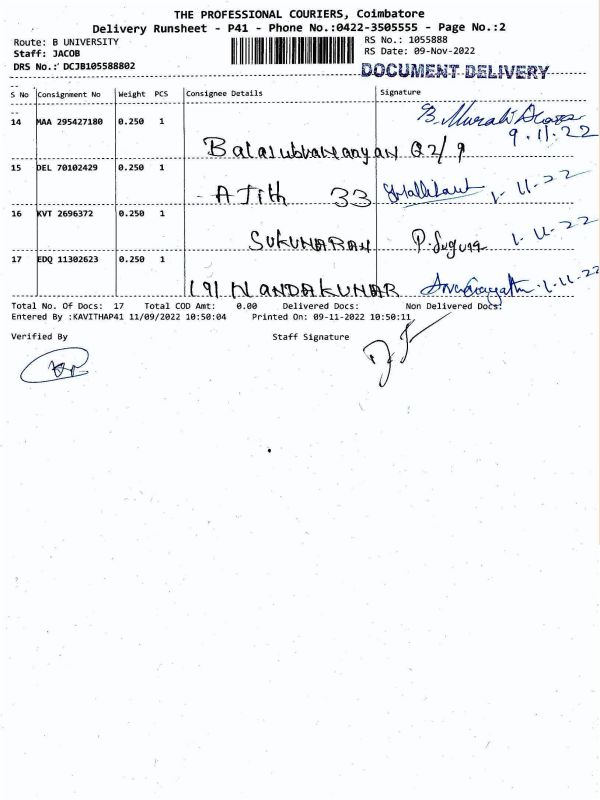 THE PROFESSIONAL COURIERS, Coimbatore
Delivery Runsheet - P41 - Phone No.:0422-3505555 - Page No.:2
Route: B UNIVERSITY RS No.: 1055888
Staff: JACOB RS Date: 09-Nov-2022
DRS No.: DCJB105588802 DOCUMENT DELIVERY
S No Consignment No Weight PCS Consignee Details Signature
14 MAA 295427180 0.250 1 B. Murali
9.11.22
Balasubramanyan Q2/9
15 DEL 70102429 0.250 1
AJith 33
16 KVT 2696372 0.250 1
SUKUMARAN P. Suguna
17 EDQ 11302623 0.250 1
191 NANDAKUMAR
Total No. Of Docs: 17 Total COD Amt: 0.00 Delivered Docs: Non Delivered Docs:
Entered By :KAVITHAP41 11/09/2022 10:50:04 Printed On: 09-11-2022 10:50:11
Verified By Staff Signature